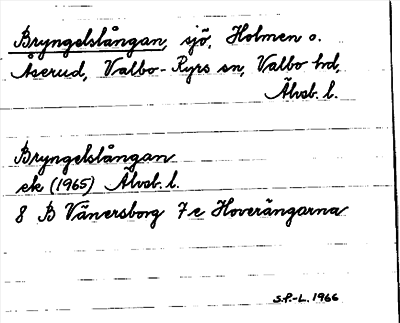 Bryngelslången, sjö, Holmen o.
Åserud, Valbo-Ryrs sn, Valbo hd,
Älvsb. l.
Bryngelslångan
ek (1965) Älvsb. l.
8 B Vänersborg 7 e Hoverängarna
S.P.-L. 1966